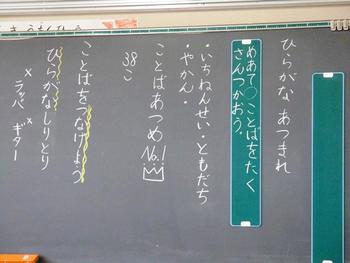 ひらがな あつまれ
めあて○ことばをたく
さんつかおう。
・いちねんせい・ともだち
・やかん・
ことばあつめNo.1
38こ
ことばをつなげよう
ひらがなしりとり
×ラッパ ×ギター